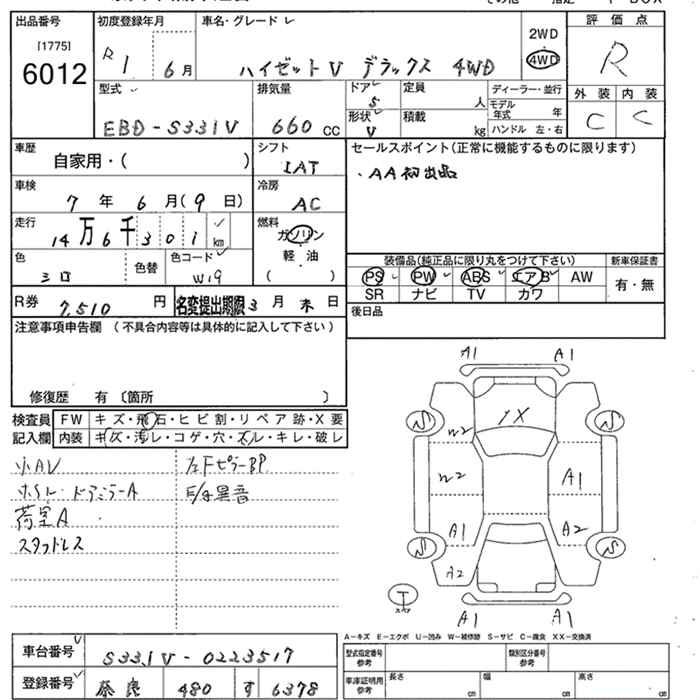 出品番号 初度登録年月 車名・グレード 評価点
[1775]
6012
R1 6月 ハイゼットV デラックス 4WD
2WD
4WD
R
型式 排気量 ドア 定員 ディーラー・並行 外装 内装
5 人 モデル年式 年
EBD-S331V 660 cc
形状 積載
V kg ハンドル 左・右
C C
車歴 シフト セールスポイント(正常に機能するものに限ります)
自家用・( )
IAT
・AA初出品
車検 冷房
7年 6月(9日) AC
走行 燃料
14万6千301km
ガソリン
軽油
( )
色 色替 色コード
シロ W19
装備品(純正品に限り丸をつけて下さい) 新車保証書
PS PW ABS エアB AW
SR ナビ TV カワ
有・無
R券 7,510円 名変提出期限 3月末日
後日品
注意事項申告欄 (不具合内容等は具体的に記入して下さい)
修復歴 有〔箇所 〕
検査員 FW キズ・飛石・ヒビ割・リペア跡・X要
記入欄 内装 キズ・汚レ・コゲ・穴・ズレ・キレ・破レ
小AU 左FピラーBP
ホイル・ドアミラーA E/g異音
荷室A
スタッドレス
A1 A1
1X
W2
W2 A1
A1 A2
A2
T
スペア
A1 A1
A-キズ E-エクボ U-凹み W-補修跡 S-サビ C-腐食 XX-交換済
車台番号 S331V-0223517
型式指定番号 参考 類別区分番号 参考
登録番号 奈良 480 す 6378
車庫証明用 参考 長さ cm 幅 cm 高さ cm